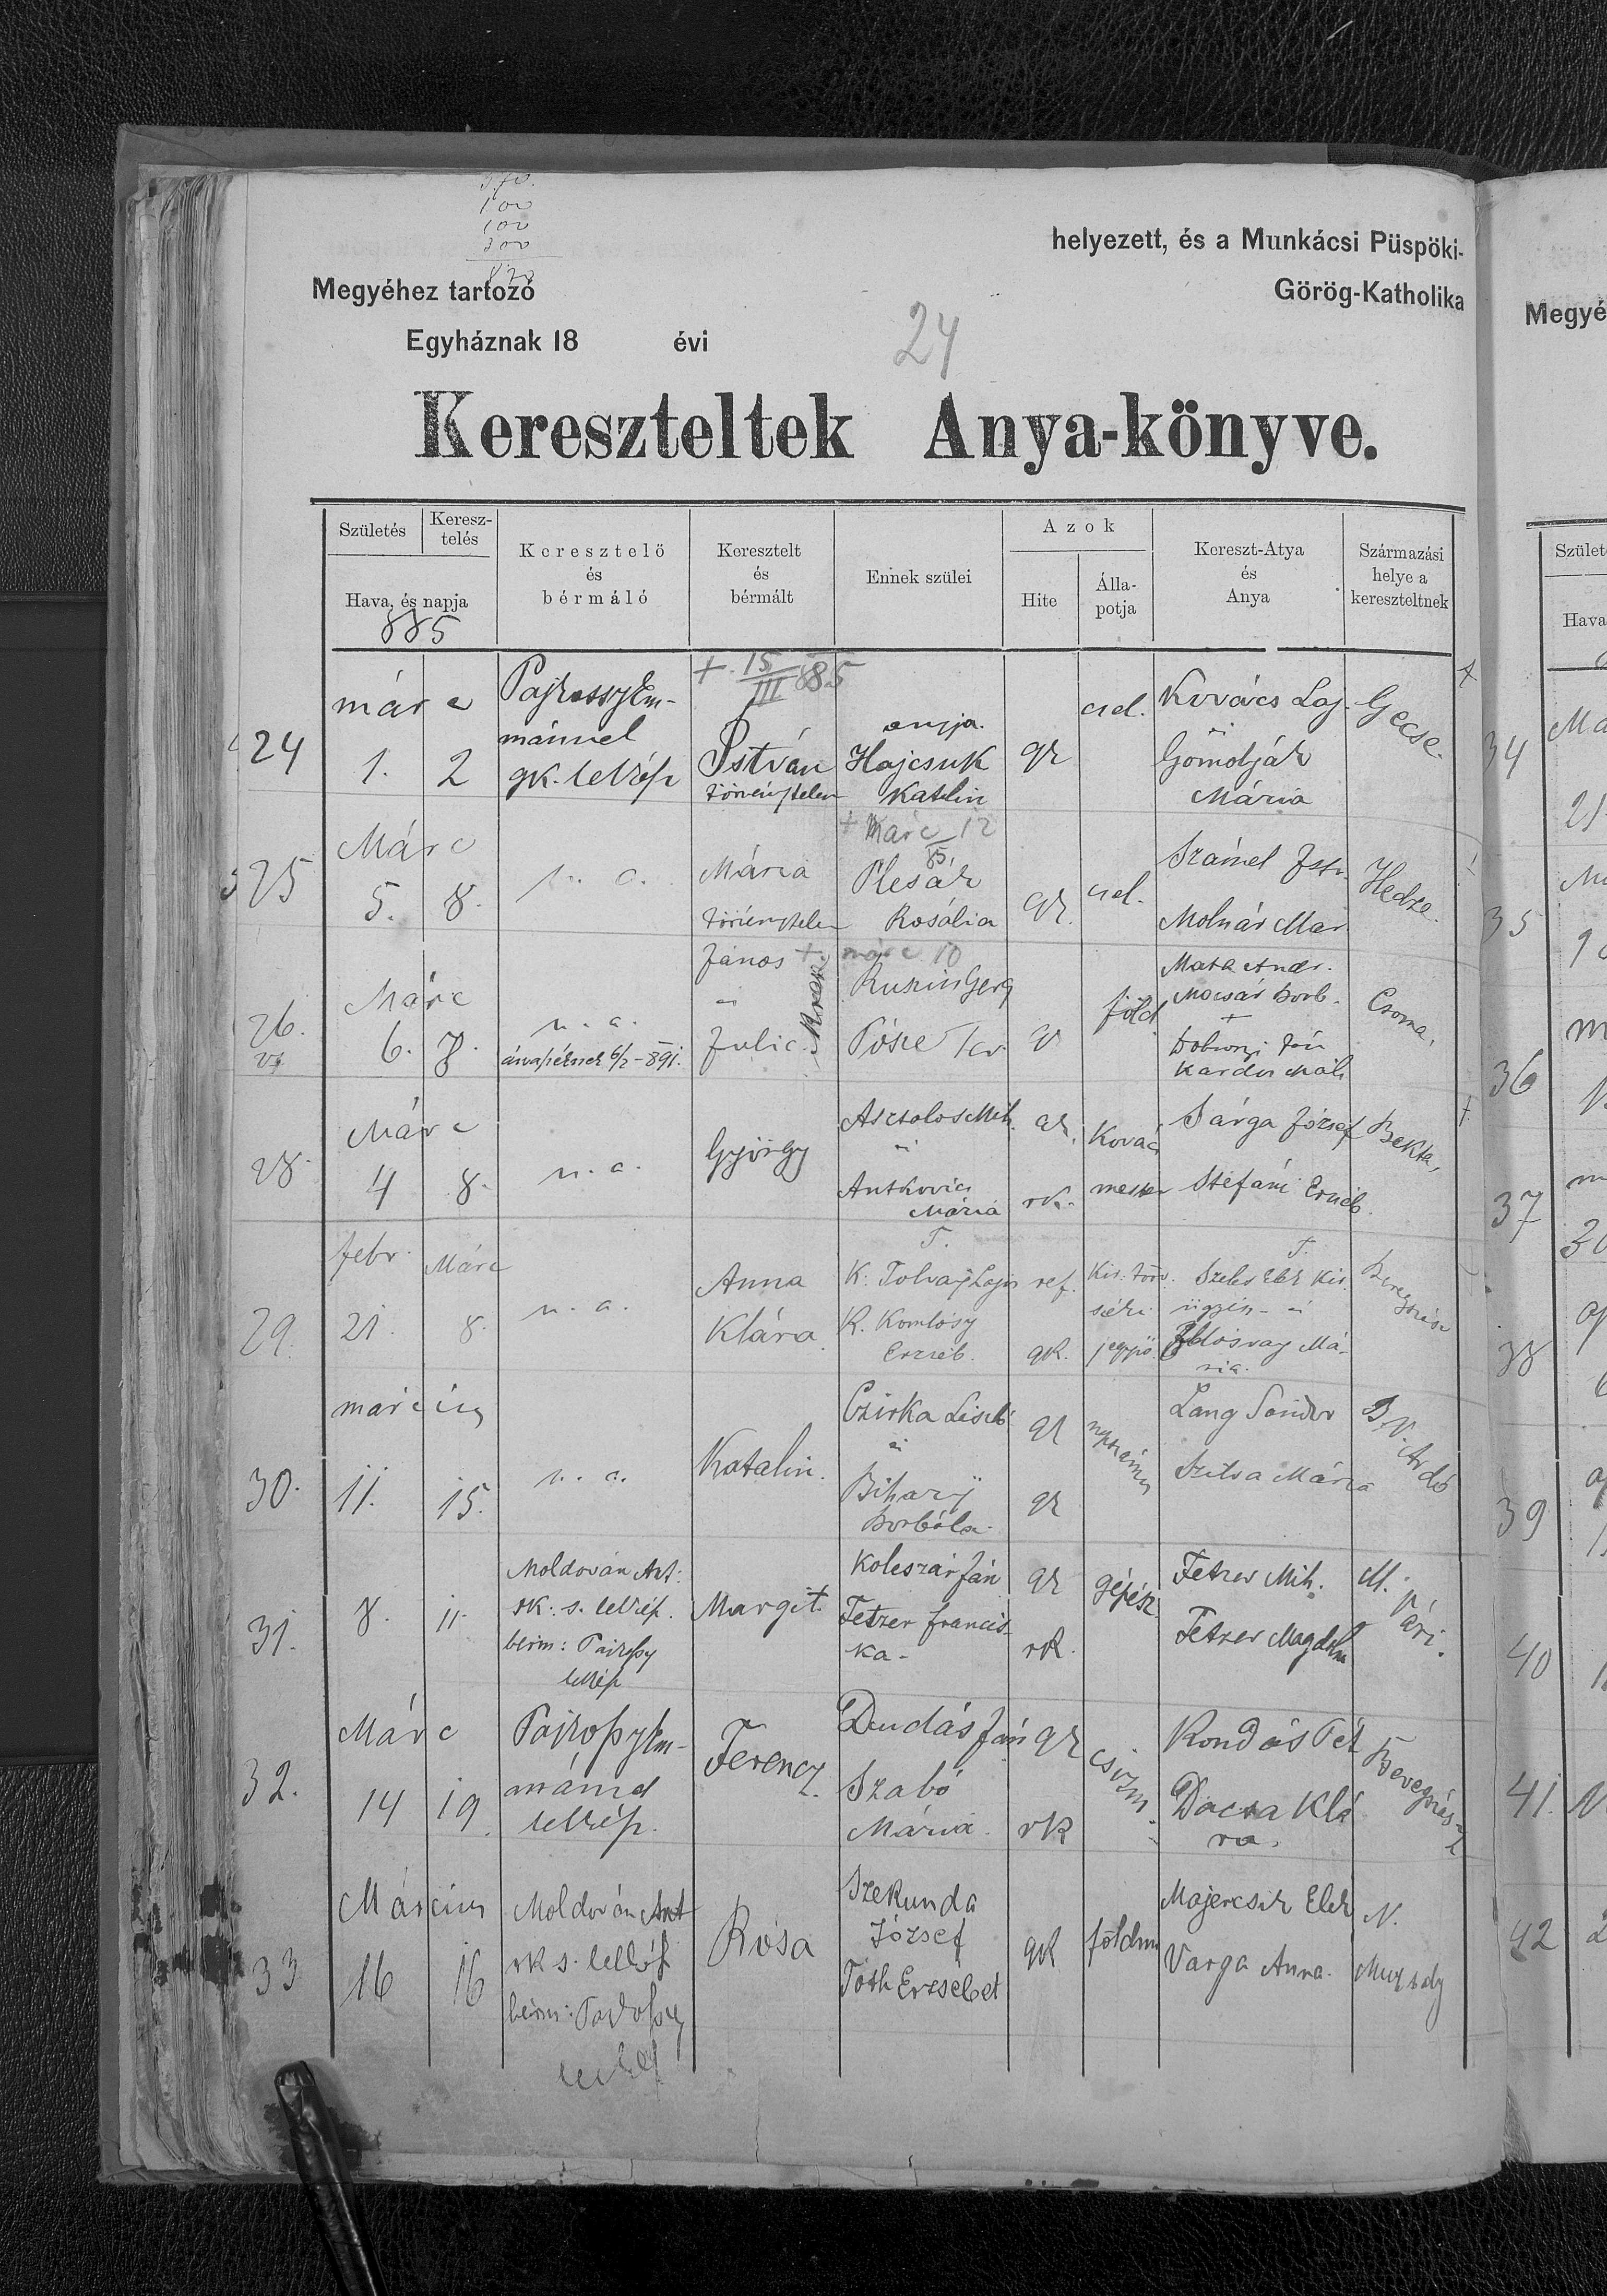 100
100
300
helyezett, és a Munkácsi Püspöki-
Megyéhez tartozó
Görög-Katholika
Egyháznak 18 évi
24
Kereszteltek Anya-könyve.
Születés
Keresz-
telés
Hava, és napja
885
Keresztelő
és
bérmáló
Keresztelt
és
bérmált
Ennek szülei
Azok
Hite
Álla-
potja
Kereszt-Atya
és
Anya
Származási
helye a
kereszteltnek
+ 15/III 885
24
márc
1. 2
gk. lelkész
István
törvénytelen
anyja
Hajcsuk
Katalin
gk
csel.
Kovács Laj.
Gömölják
Mária
Gecse
25
Márc
5. 8.
u. a.
Mária
törvénytelen
+ Márc 12
85
Plesák
Rosália
gk.
csel.
Molnár Mar
Hedze
26.
27
Márc
6. 7.
u. a.
János + márc 10
Julia
föld
Mata And.
Mocsár Borb.
+
Csoma,
28
Márc
4 8.
u. a.
György
Asztalos Mih.
és
Antkovics
Mária
gk.
rk.
Kovács
mester
Sárga József
Stefáni Erzséb.
Bekta,
29.
febr.
21.
Márc
8.
u. a.
Anna
Klára
T.
K. Tolvaj Lajos
K. Komlósy
Erzséb.
ref.
gk.
Kir. törv.
széki
jegyző
T.
Szeles Elek Kir.
ügyész és
Ilosvay Má-
ria.
Beregszász
30.
március
11. 15.
u. a.
Katalin.
Czirka László
és
Bihary
Borbála
gk
gk
napszámos
Lang Sándor
Szilva Mária
B. V. Ardó
31.
8. 11.
Moldován Ant.
rk. s. lelkész.
bérm: Pajkossy
lelkész
Margit
Koleszár Ján
Fetzer Francis-
ka.
gk
rk.
gépész
Fetzer Mih.
Fetzer Magdolna
32.
Márc
14 19
Pajkossy Em-
mánuel
lelkész.
Ferencz.
Dudás Ján
Szabó
Mária
gk
rk
csizm.
Kondás Pét
Dacsa Klá
ra.
Beregszász
33
Március
16 16
Moldován Ant
rk s. lelkész
bérm: Pajkossy
lelkész
Rósa
Szekunda
József
Tóth Erzsébet
gk
földm
Majercsik Elek
Varga Anna.
N.
Muzsaly
Megyé
Születé
Hava
34
35
36
37
38
39
40
41.
42